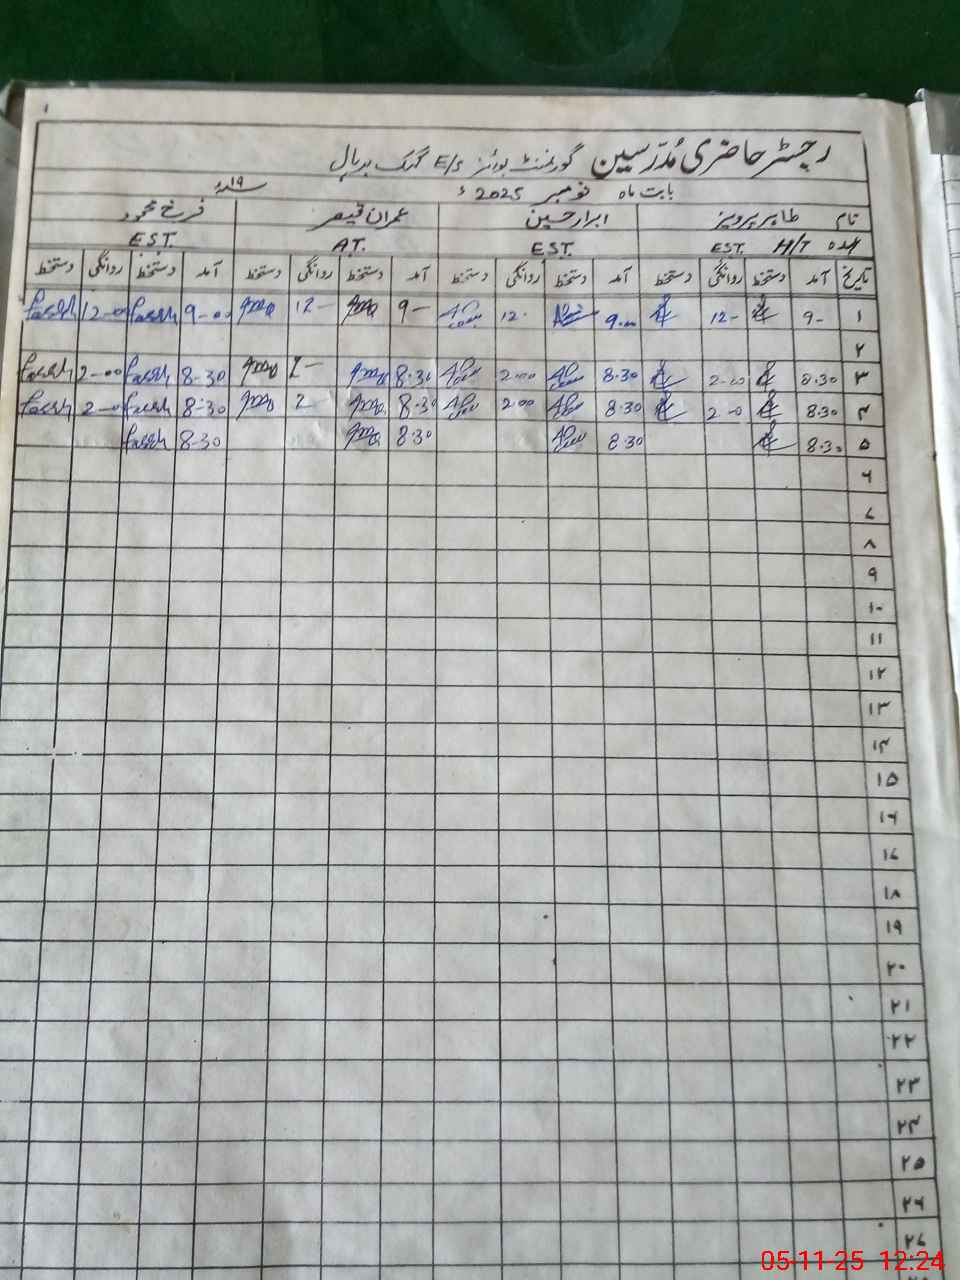 رجسٹر حاضری مُدرّسین گورنمنٹ بوائز E/S
بابت ماہ نومبر 2025ء ۱۹
نام طاہر پرویز ابرار حسین عمران قیصر فرخ محمود
عہدہ H/T EST. EST. A.T. EST.
تاریخ آمد دستخط روانگی دستخط آمد دستخط روانگی دستخط آمد دستخط روانگی دستخط آمد دستخط روانگی دستخط
۱ 9- 12- 9.00 12. 9- 12- 9-00 Farrukh 12-00 Farrukh
۲
۳ 8.30 2-00 8.30 2.00 8.30 2- 8-30 Farrukh 2-00 Farrukh
۴ 8.30 2-0 8.30 2.00 8.30 2 8-30 Farrukh 2-0 Farrukh
۵ 8.30 8.30 8.30 8-30 Farrukh
۶
۷
۸
۹
۱۰
۱۱
۱۲
۱۳
۱۴
۱۵
۱۶
۱۷
۱۸
۱۹
۲۰
۲۱
۲۲
۲۳
۲۴
۲۵
۲۶
۲۷
05-11-25 12:24